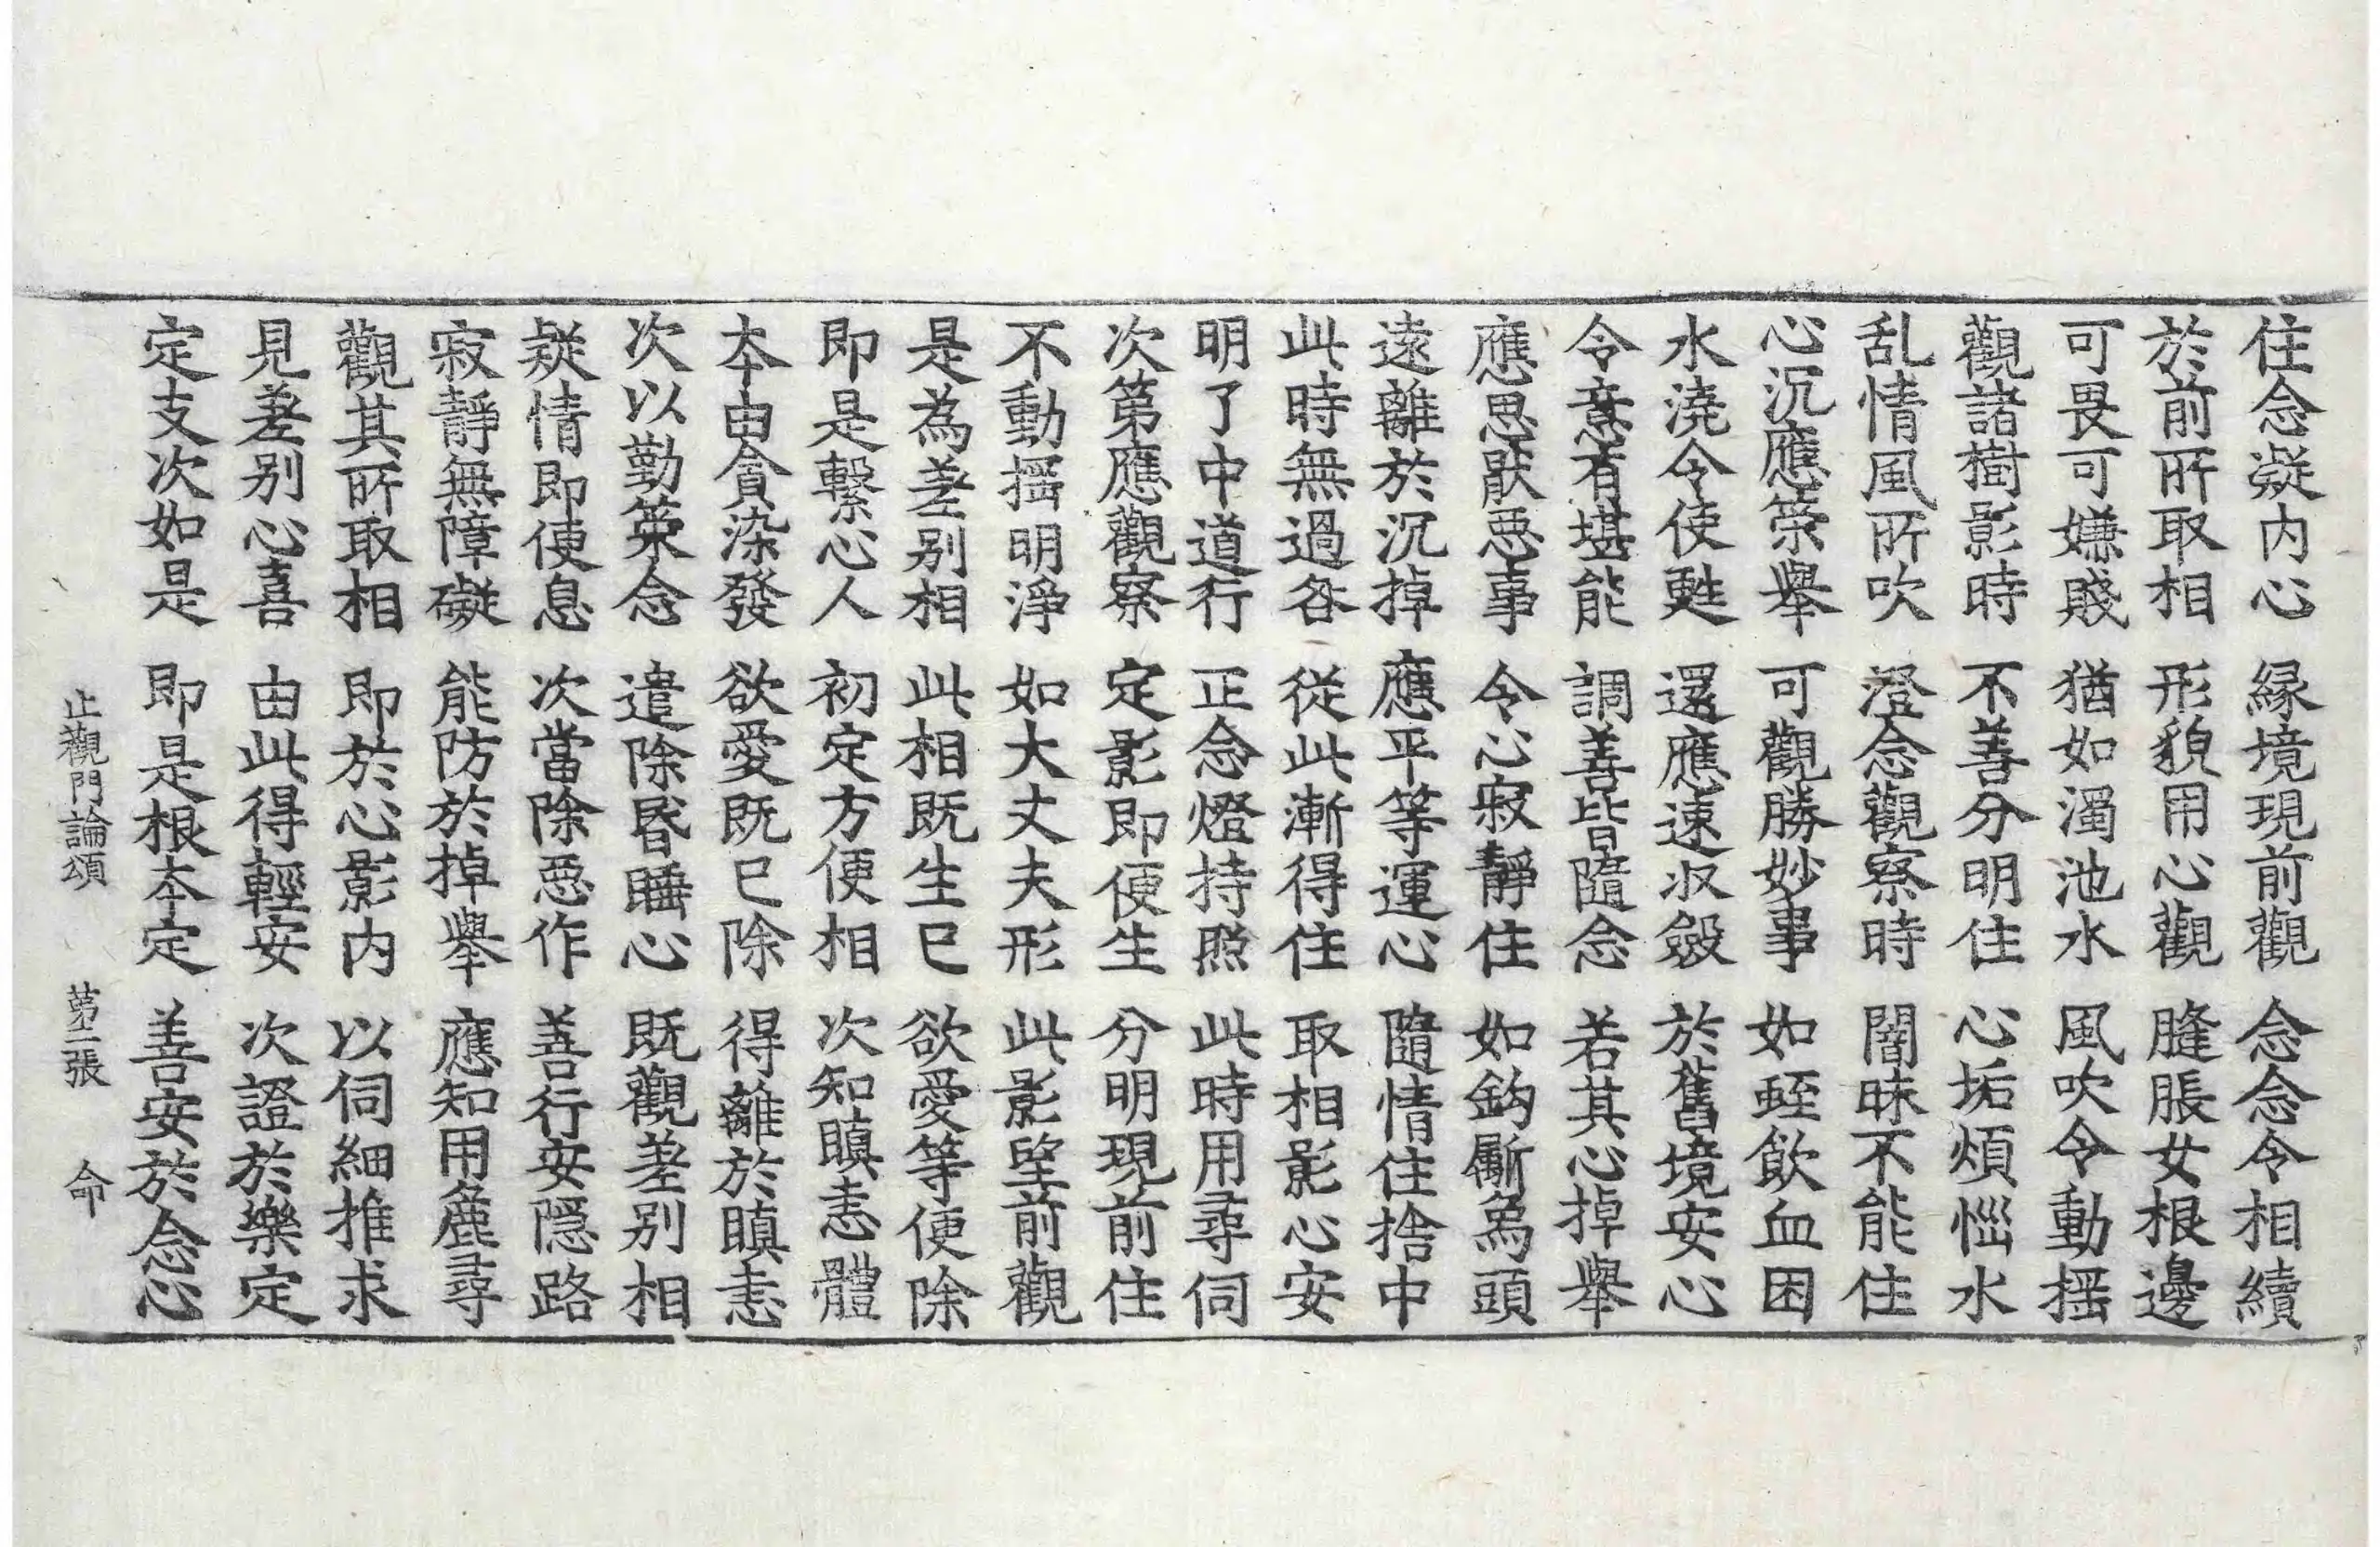 住念凝内心 縁境現前觀 念念令相續
於前所取相 形貌用心觀 膖脹女根邊
可畏可嫌賤 猶如濁池水 風吹令動揺
觀諸樹影時 不善分明住 心垢煩惱水
乱情風所吹 澄念觀察時 闇昧不能住
心沉應策舉 可觀勝妙事 如蛭飲血困
水澆令使甦 還應速收斂 於舊境安心
令意有堪能 調善皆隨念 若其心掉舉
應思猒惡事 令心寂靜住 如鈎斸象頭
遠離於沉掉 應平等運心 隨情住捨中
此時無過咎 從此漸得住 取相影心安
明了中道行 正念燈持照 此時用尋伺
次第應觀察 定影即便生 分明現前住
不動揺明淨 如大丈夫形 此影望前觀
是為差別相 此相既生已 欲愛等便除
即是繫心人 初定方便相 次知瞋恚體
本由貪染發 欲愛既已除 得離於瞋恚
次以勤策念 遣除昏睡心 既觀差別相
疑情即使息 次當除惡作 善行安隠路
寂靜無障礙 能防於掉舉 應知用麁尋
觀其所取相 即於心影内 以伺細推求
見差别心喜 由此得輕安 次證於樂定
定支次如是 即是根本定 善安於念心
止觀門論頌 第二張 命